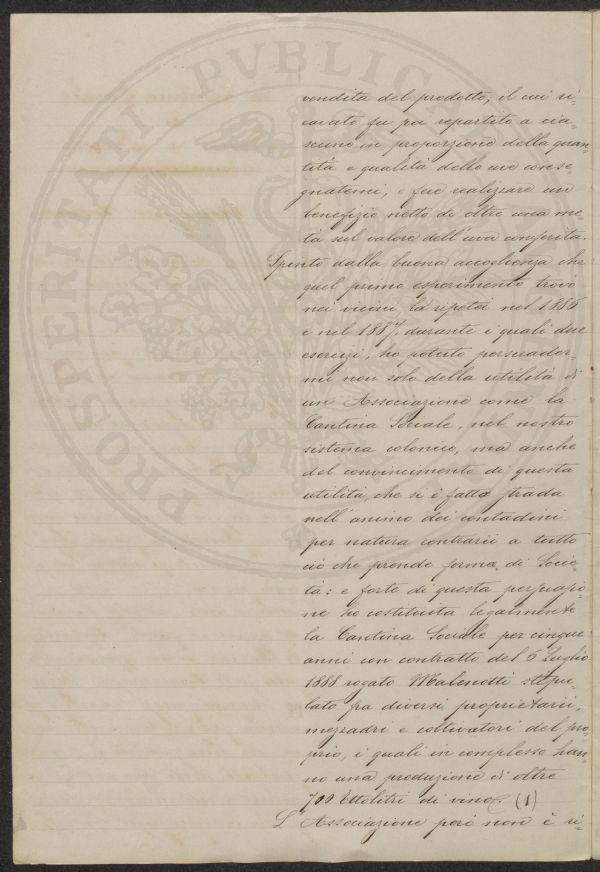 PROSPERITATI PVBLICAE
vendita del prodotto, il cui ri-
cavato fu poi repartito a cia-
scuno in proporzione della quan-
tità e qualità delle uve conse-
gnatemi, e fece realizzare un
benefizio netto di oltre una me-
tà sul valore dell'uva conferita.
Spinto dalla buona accoglienza che
quel primo esperimento trovò
nei vicini, la ripetei nel 1886
e nel 1887, durante i quali due
esercizi, ho potuto persuader-
mi non solo della utilità di
un Associazione come la
Cantina Sociale, nel nostro
sistema colonico, ma anche
del convincimento di questa
utilità, che si è fatto strada
nell'animo dei contadini
per natura contrarii a tutto
ciò che prende forma di Socie-
tà: e forte di questa persuasio-
ne ho costituita legalmente
la Cantina Sociale per cinque
anni con contratto del 5 Luglio
1888 rogato Malenotti stipu-
lato fra diversi proprietarii,
mezzadri e coltivatori del pro-
prio, i quali in complesso han-
no una produzione di oltre
700 Ettolitri di vino. (1)
L'Associazione però non è ri-